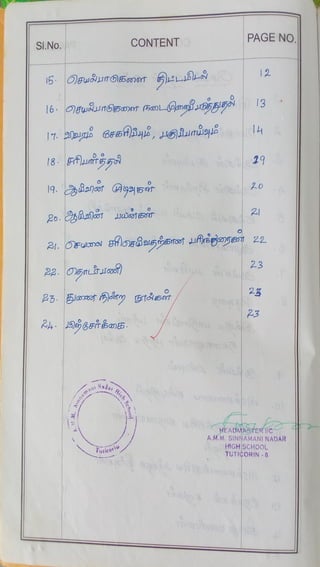 Sl.No. CONTENT PAGE NO.
15. செயல்பாடுகளை திட்டமிடல் 12
16. செயல்பாடுகளை நடைமுறைபடுத்துதல் 13
17. விவரம் சேகரிப்பும், பகுப்பாய்வும் 14
18. சரிபார்த்தல் 19
19. ஆய்வின் முடிவுகள் 20
20. ஆய்வின் பயன்கள் 21
21. செயலை சரிசெய்வதற்கான பரிந்துரைகள் 22
22. தொடர்பணி 23
23. துணை நின்ற நூல்கள் 23
24. பிற்சேர்க்கை. 23
A.M.M. Sinnamani Nadar High School
Tuticorin
HEADMASTER I/C
A.M.M. SINNAMANI NADAR
HIGH SCHOOL
TUTICORIN - 8